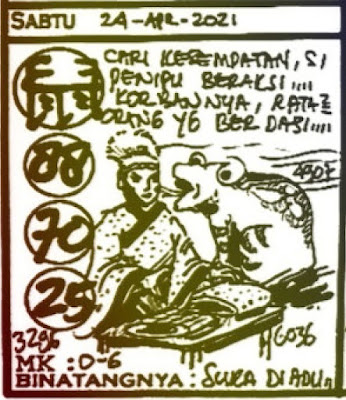 SABTU 24-APR-2021
CARI KESEMPATAN, SI
PENIPU BERAKSI....
KORBANNYA, RATA2
ORANG YG BERDASI....
88
4507
70
25
3286
6036
MK : 0-6
BINATANGNYA : SUKA DI ADU